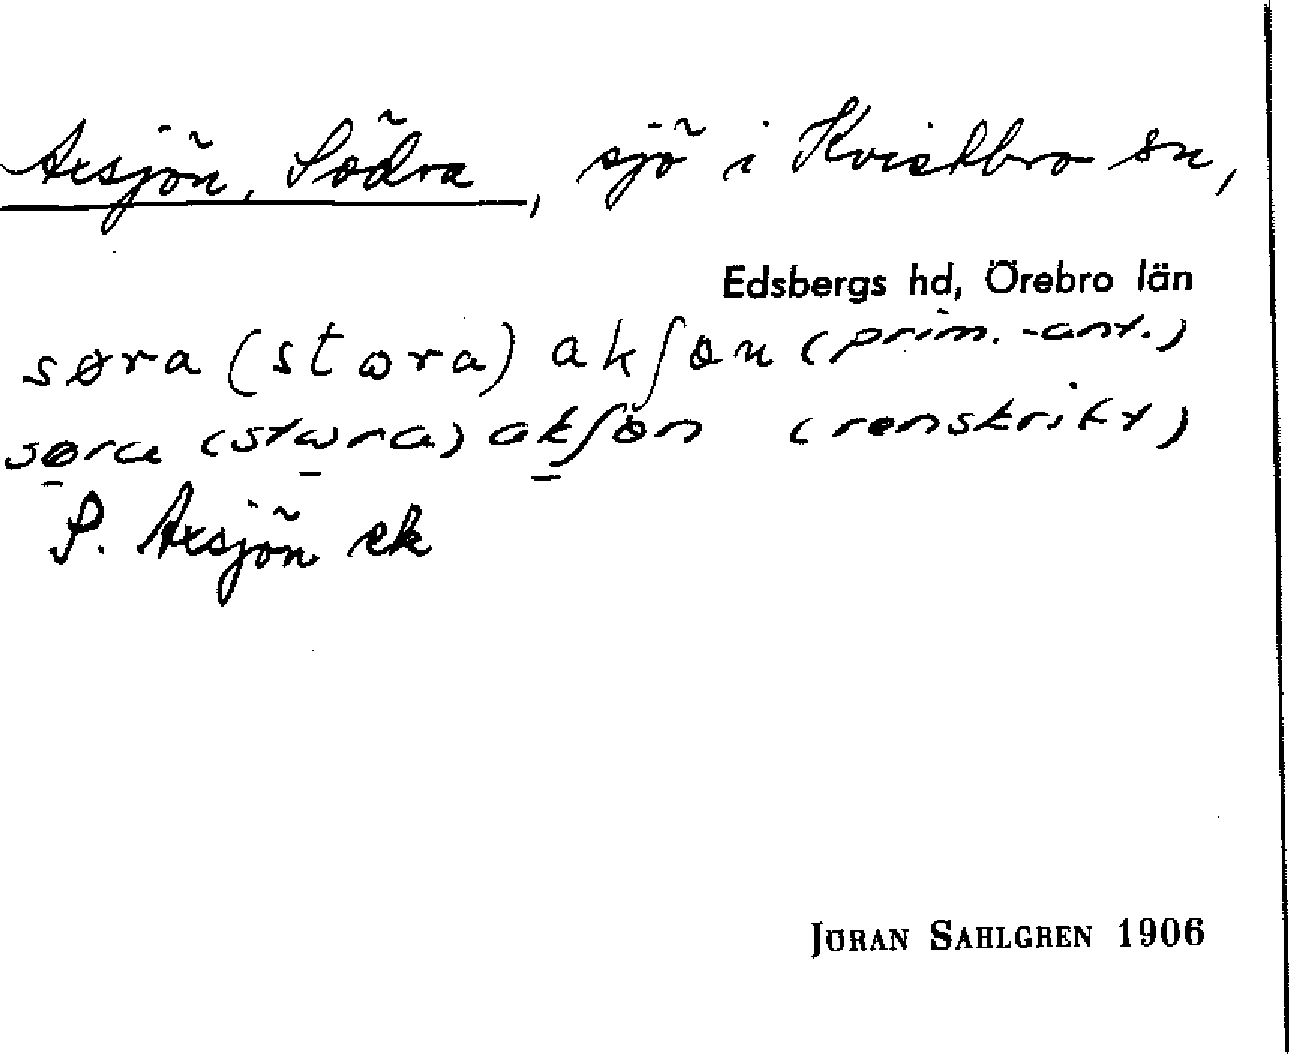 Axsjön, Södra, sjö i Kvistbro sn,
Edsbergs hd, Örebro län
søra (stɷra) akʃøn (prim.-ant.)
søra (stɷra) akʃön (renskrift)
S. Axsjön ek
JÖRAN SAHLGREN 1906